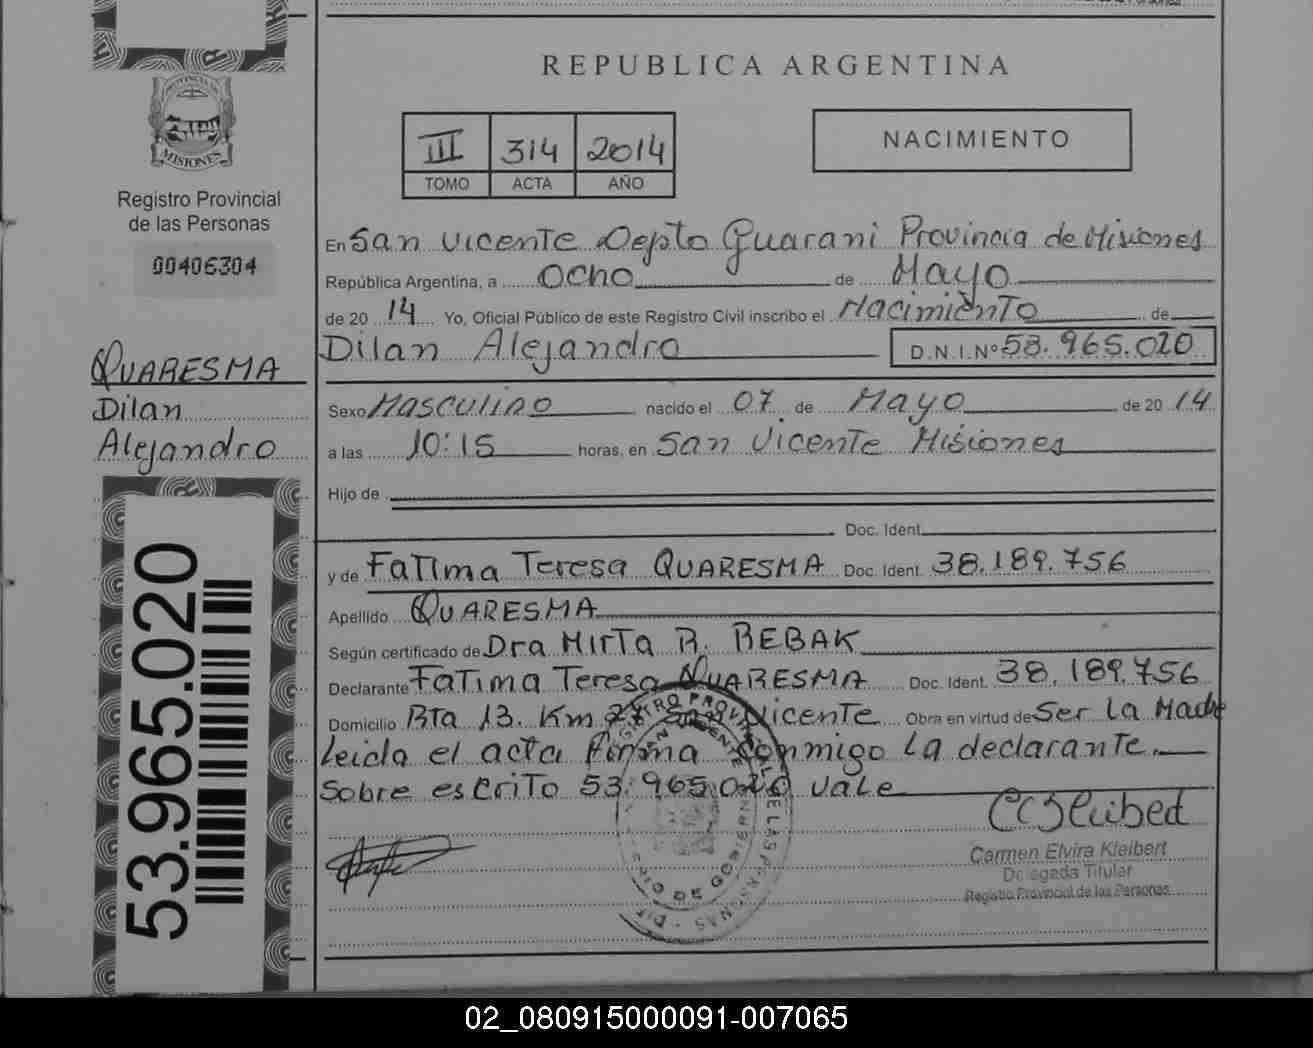 REPUBLICA ARGENTINA
III 314 2014
TOMO ACTA AÑO
NACIMIENTO
PROVINCIA DE
MISIONES
Registro Provincial
de las Personas
00406304
QUARESMA
Dilan
Alejandro
53.965.020
En San Vicente Depto Guarani Provincia de Misiones
República Argentina, a Ocho de Mayo
de 20 14 Yo, Oficial Público de este Registro Civil inscribo el Nacimiento de
Dilan Alejandro D.N.I.Nº 53.965.020
Sexo Masculino nacido el 07 de Mayo de 20 14
a las 10:15 horas, en San Vicente Misiones
Hijo de
Doc. Ident.
y de Fatima Teresa QUARESMA Doc. Ident. 38.189.756
Apellido QUARESMA
Según certificado de Dra Mirta R. BEBAK
Declarante Fatima Teresa QUARESMA Doc. Ident. 38.189.756
Domicilio Rta 13. Km San Vicente Obra en virtud de Ser La Madre
Leida el acta firma conmigo La declarante.
Sobre escrito 53.965.020 Vale
Carmen Elvira Kleibert
Delegada Titular
Registro Provincial de las Personas
02_080915000091-007065